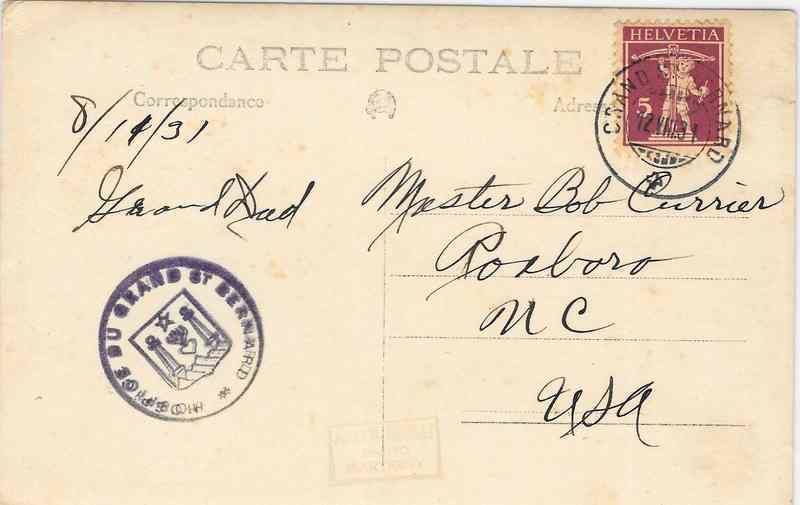 CARTE POSTALE
Correspondance
HELVETIA
5
GRAND ST BERNARD
12.VIII.31
8/11/31
Grand Dad
Master Bob Currier
Roxboro
N C
USA
HOSPICE DU GRAND ST BERNARD